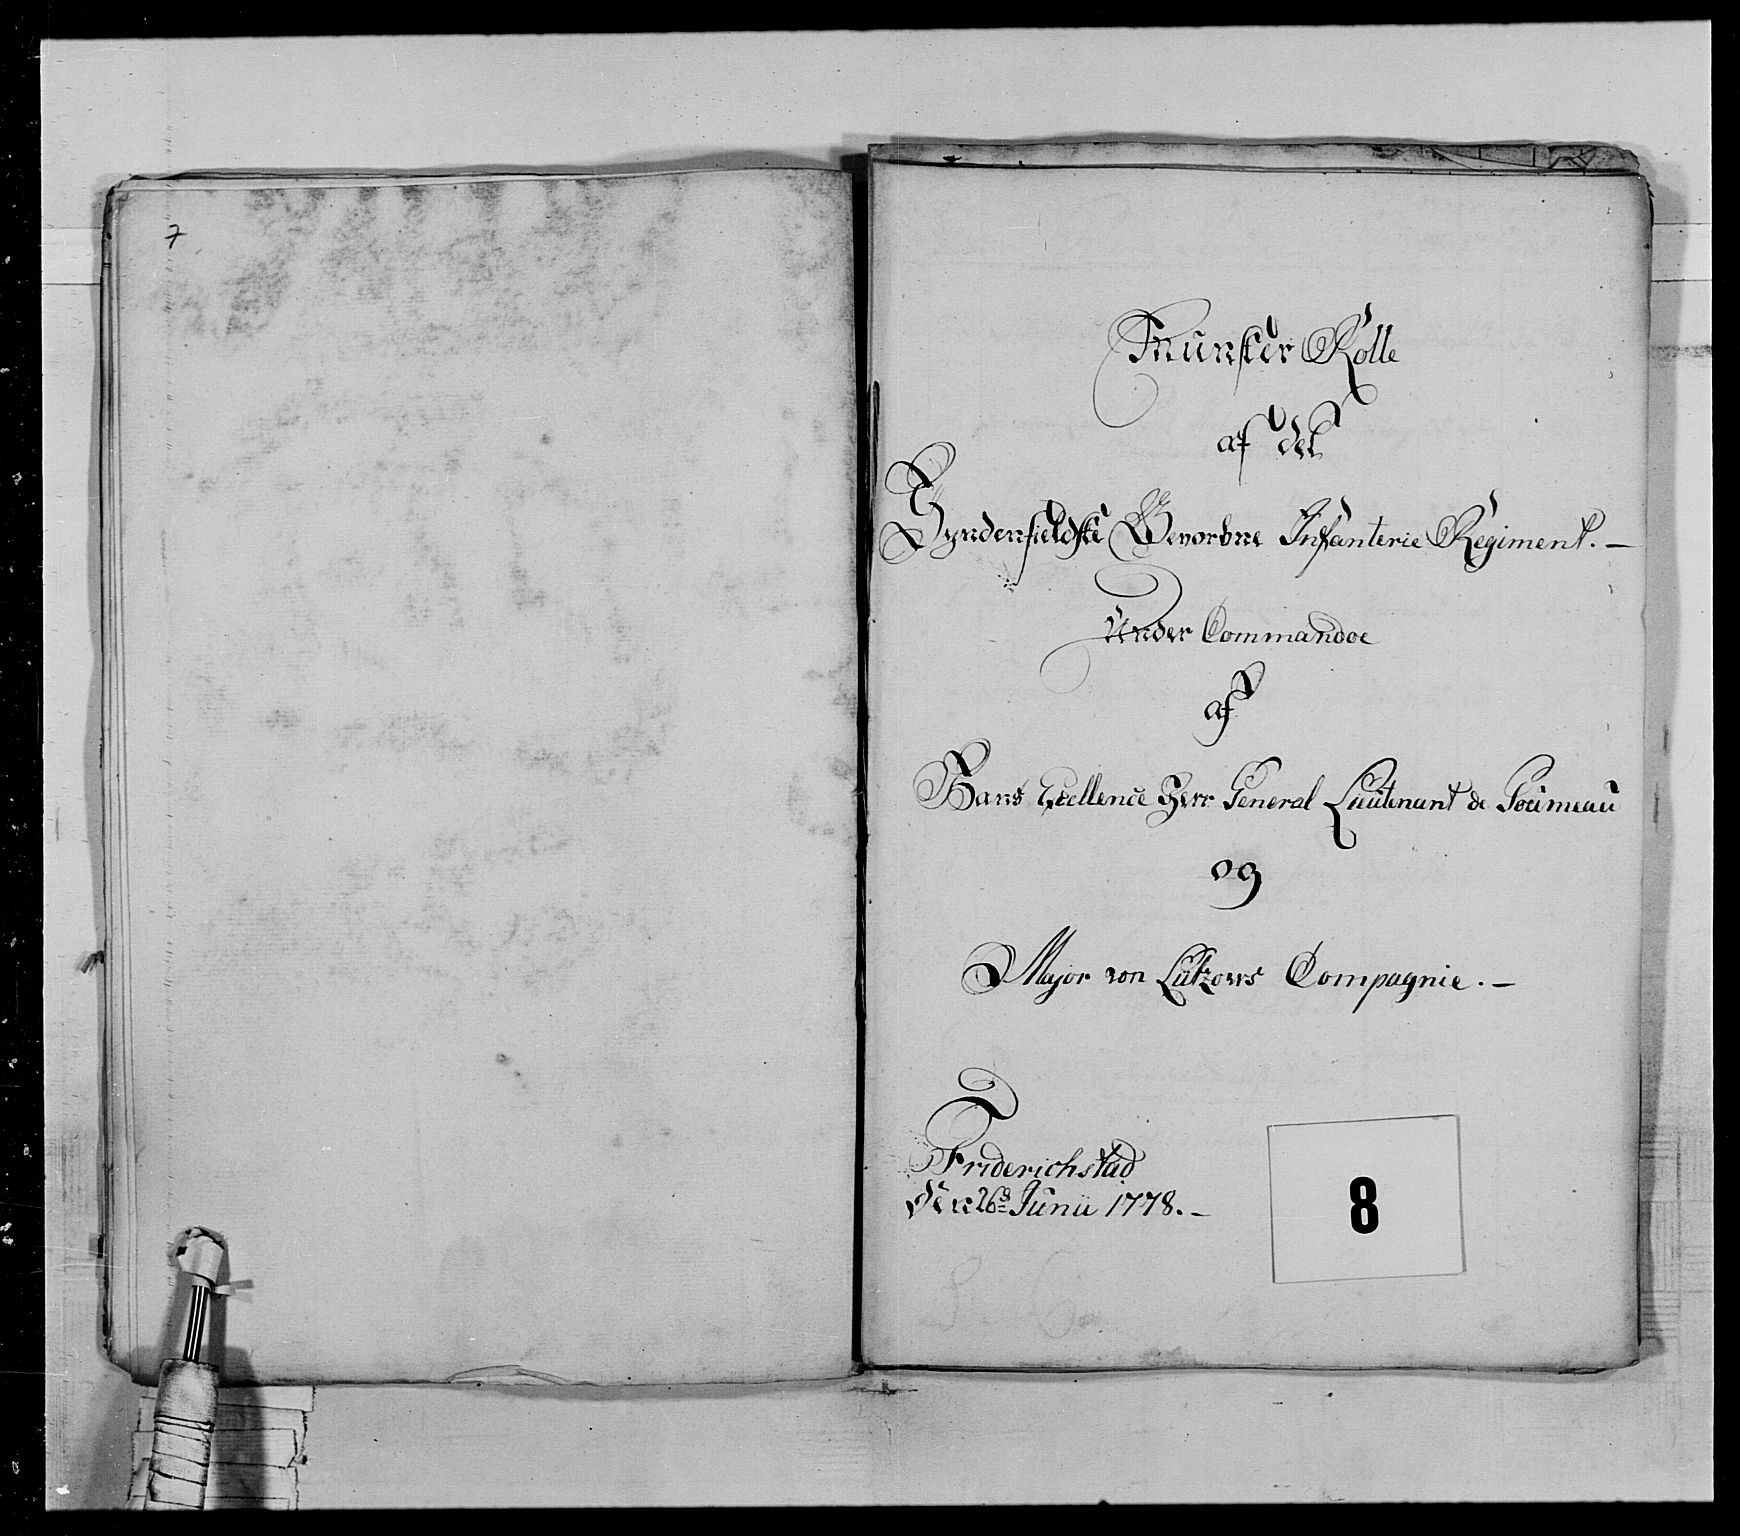 7
Munster Rolle
af det
Syndenfieldske Gevorbne Infanterie Regiment. —
Under Commandoe
af
Hans Excellence Herr General Lieutenant de Poumeau
og
Major von Lützows Compagnie. —
Friderichstad
den 26de Junii 1778. —
8